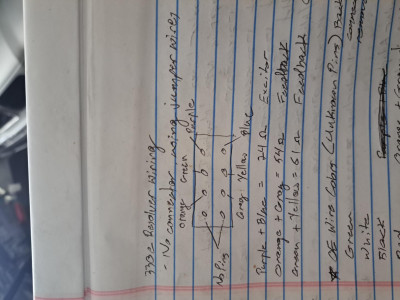 Resolver Wiring
- No connector using jumper wires
Orange Green Purple
Gray Yellow Blue
No Pins
Purple + Blue = 24 Ω Exciter
Orange + Gray = 54 Ω Feedback
Green + Yellow = 61 Ω Feedback
* OE Wire Colors (Unknown Pins)
Green
White
Black
Red